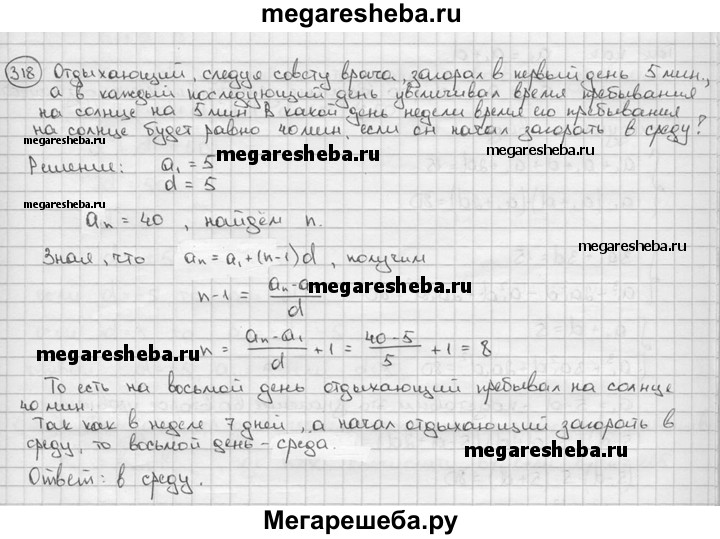 megaresheba.ru
318 Отдыхающий, следуя совету врача, загорал в первый день 5 мин.,
а в каждый последующий день увеличивал время пребывания
на солнце на 5 мин. В какой день недели время его пребывания
на солнце будет равно 40 мин, если он начал загорать в среду?
megaresheba.ru
megaresheba.ru
Решение: a₁ = 5
megaresheba.ru
d = 5
megaresheba.ru
aₙ = 40, найдём n.
megaresheba.ru
Зная, что aₙ = a₁ + (n-1)d, получим
n-1 = (aₙ - a)/d
megaresheba.ru
megaresheba.ru
n = (aₙ - a₁)/d + 1 = (40-5)/5 + 1 = 8
То есть на восьмой день отдыхающий пребывал на солнце
40 мин.
Так как в неделе 7 дней, а начал отдыхающий загорать в
среду, то восьмой день - среда.
megaresheba.ru
Ответ: в среду.
Мегарешеба.ру